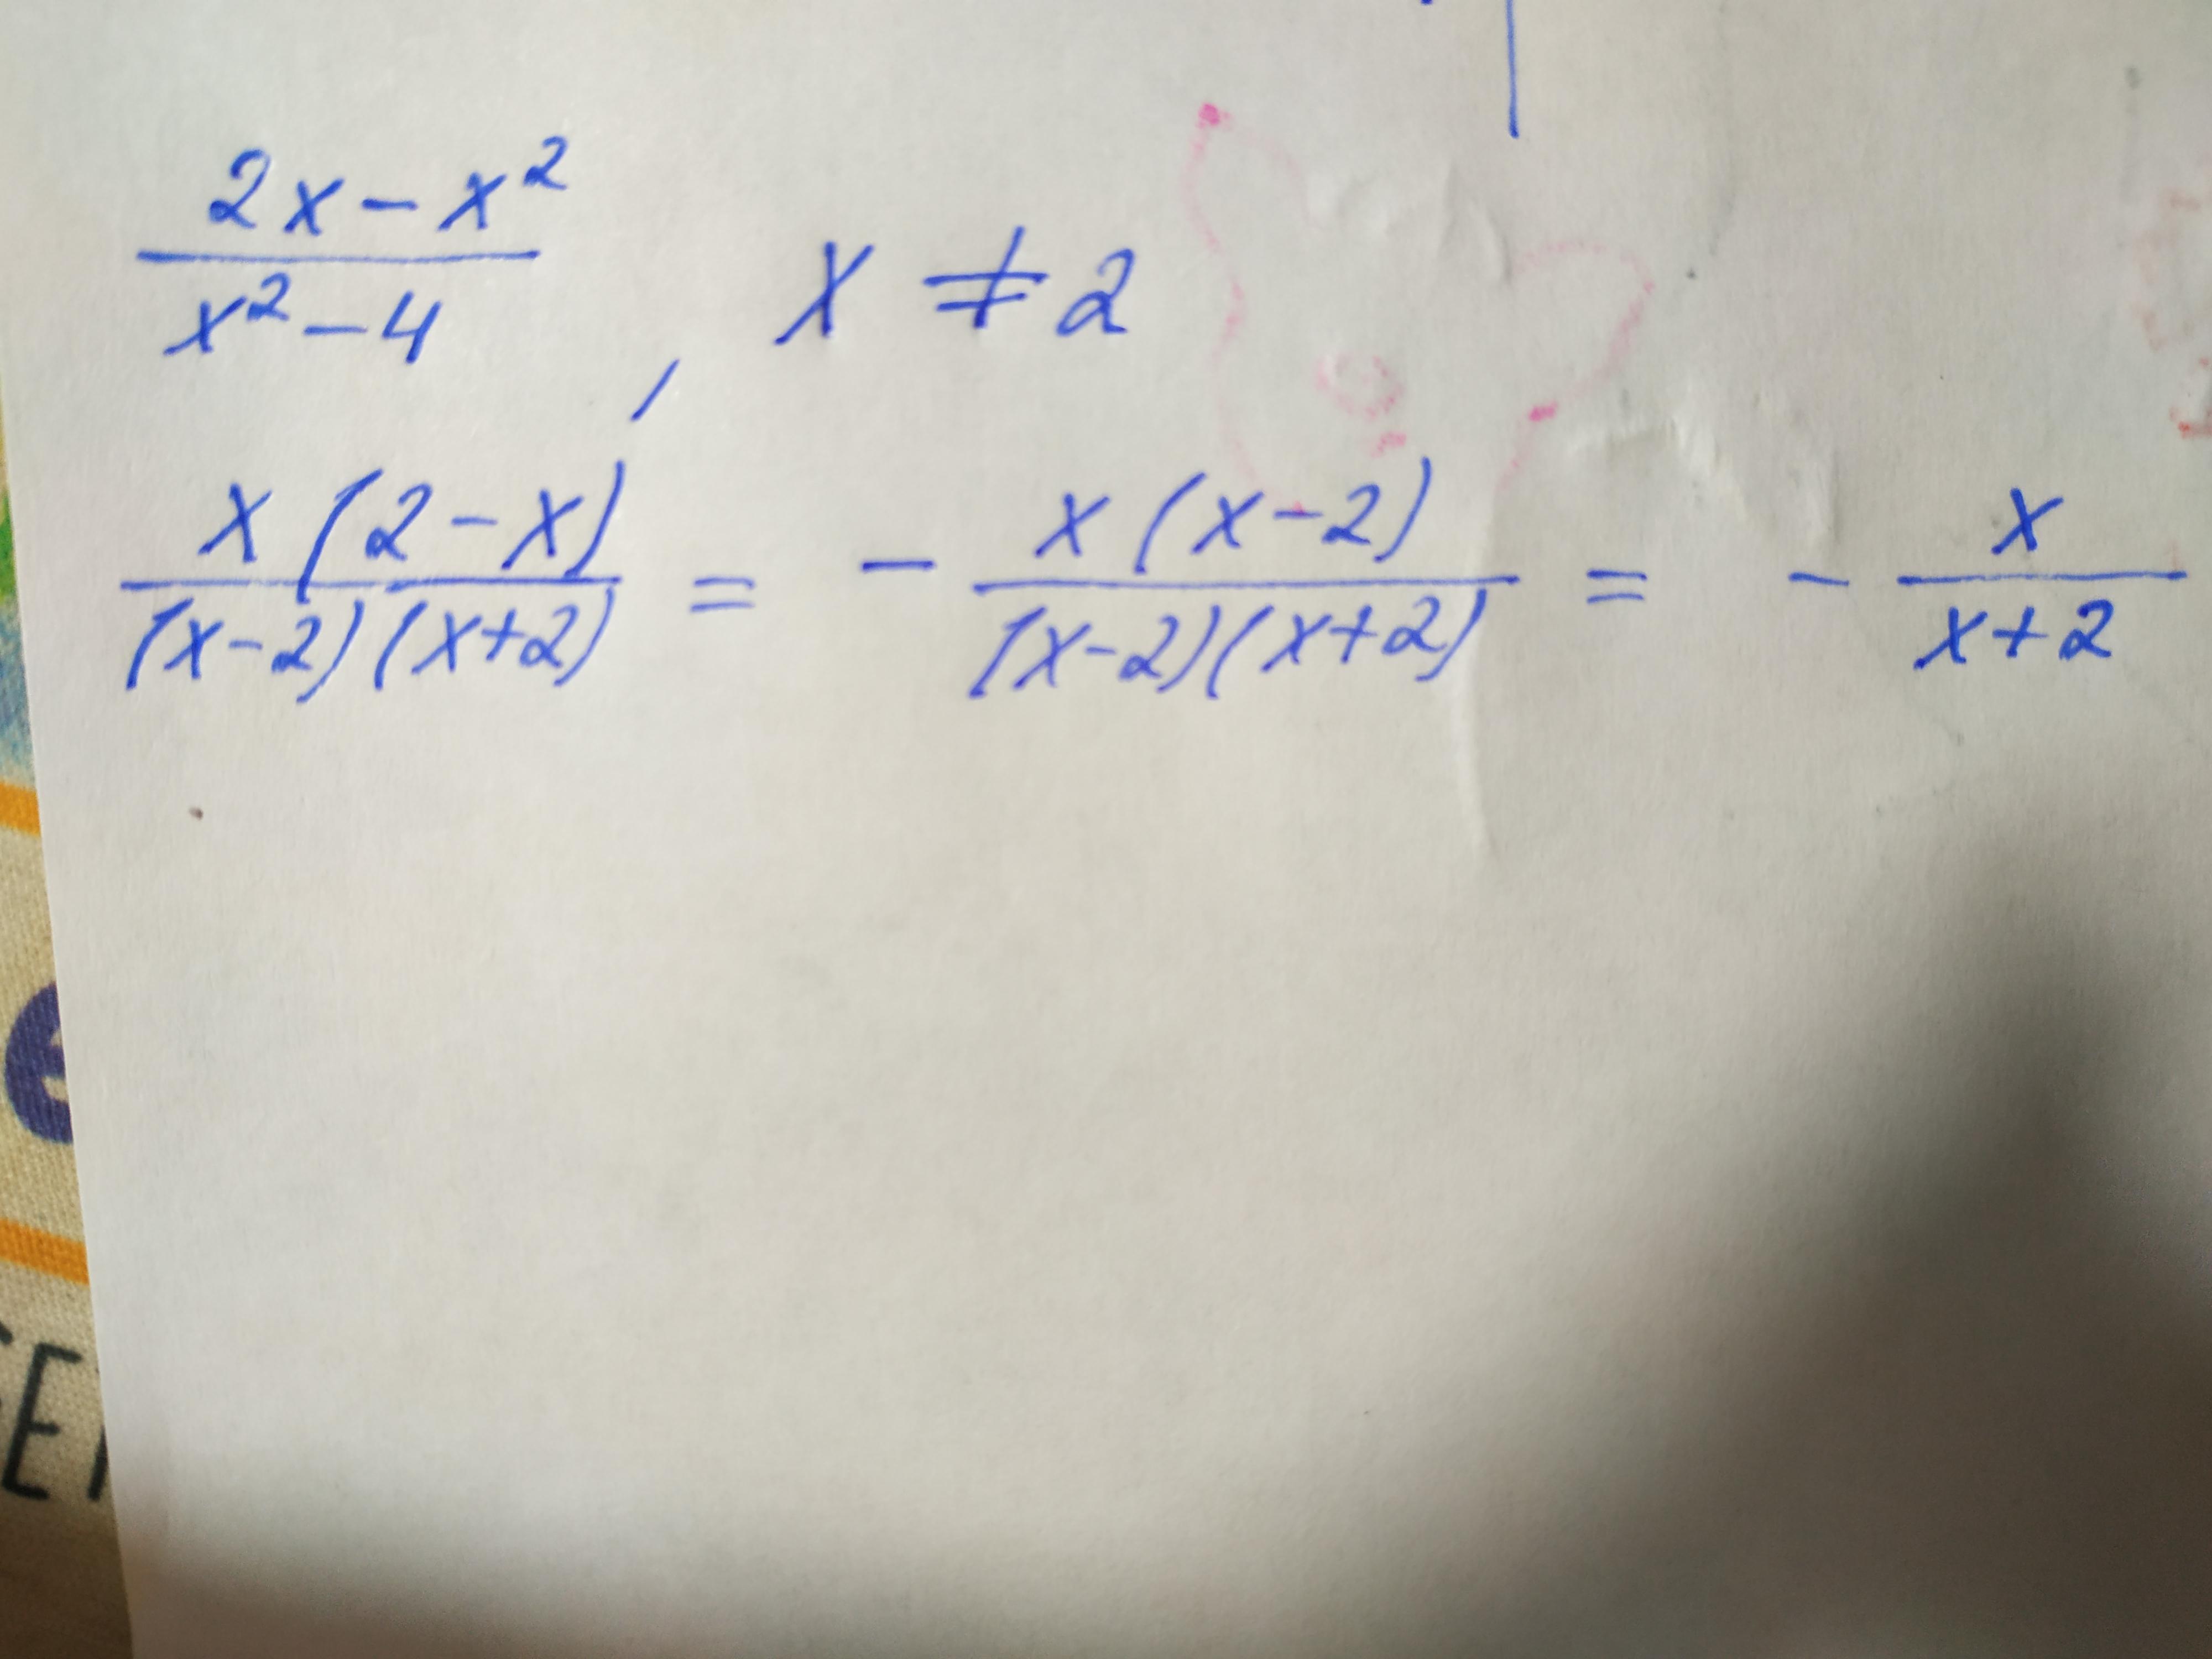 (2x - x²)/(x² - 4), x ≠ 2
(x(2 - x))/((x-2)(x+2)) = - (x(x-2))/((x-2)(x+2)) = - x/(x+2)
e